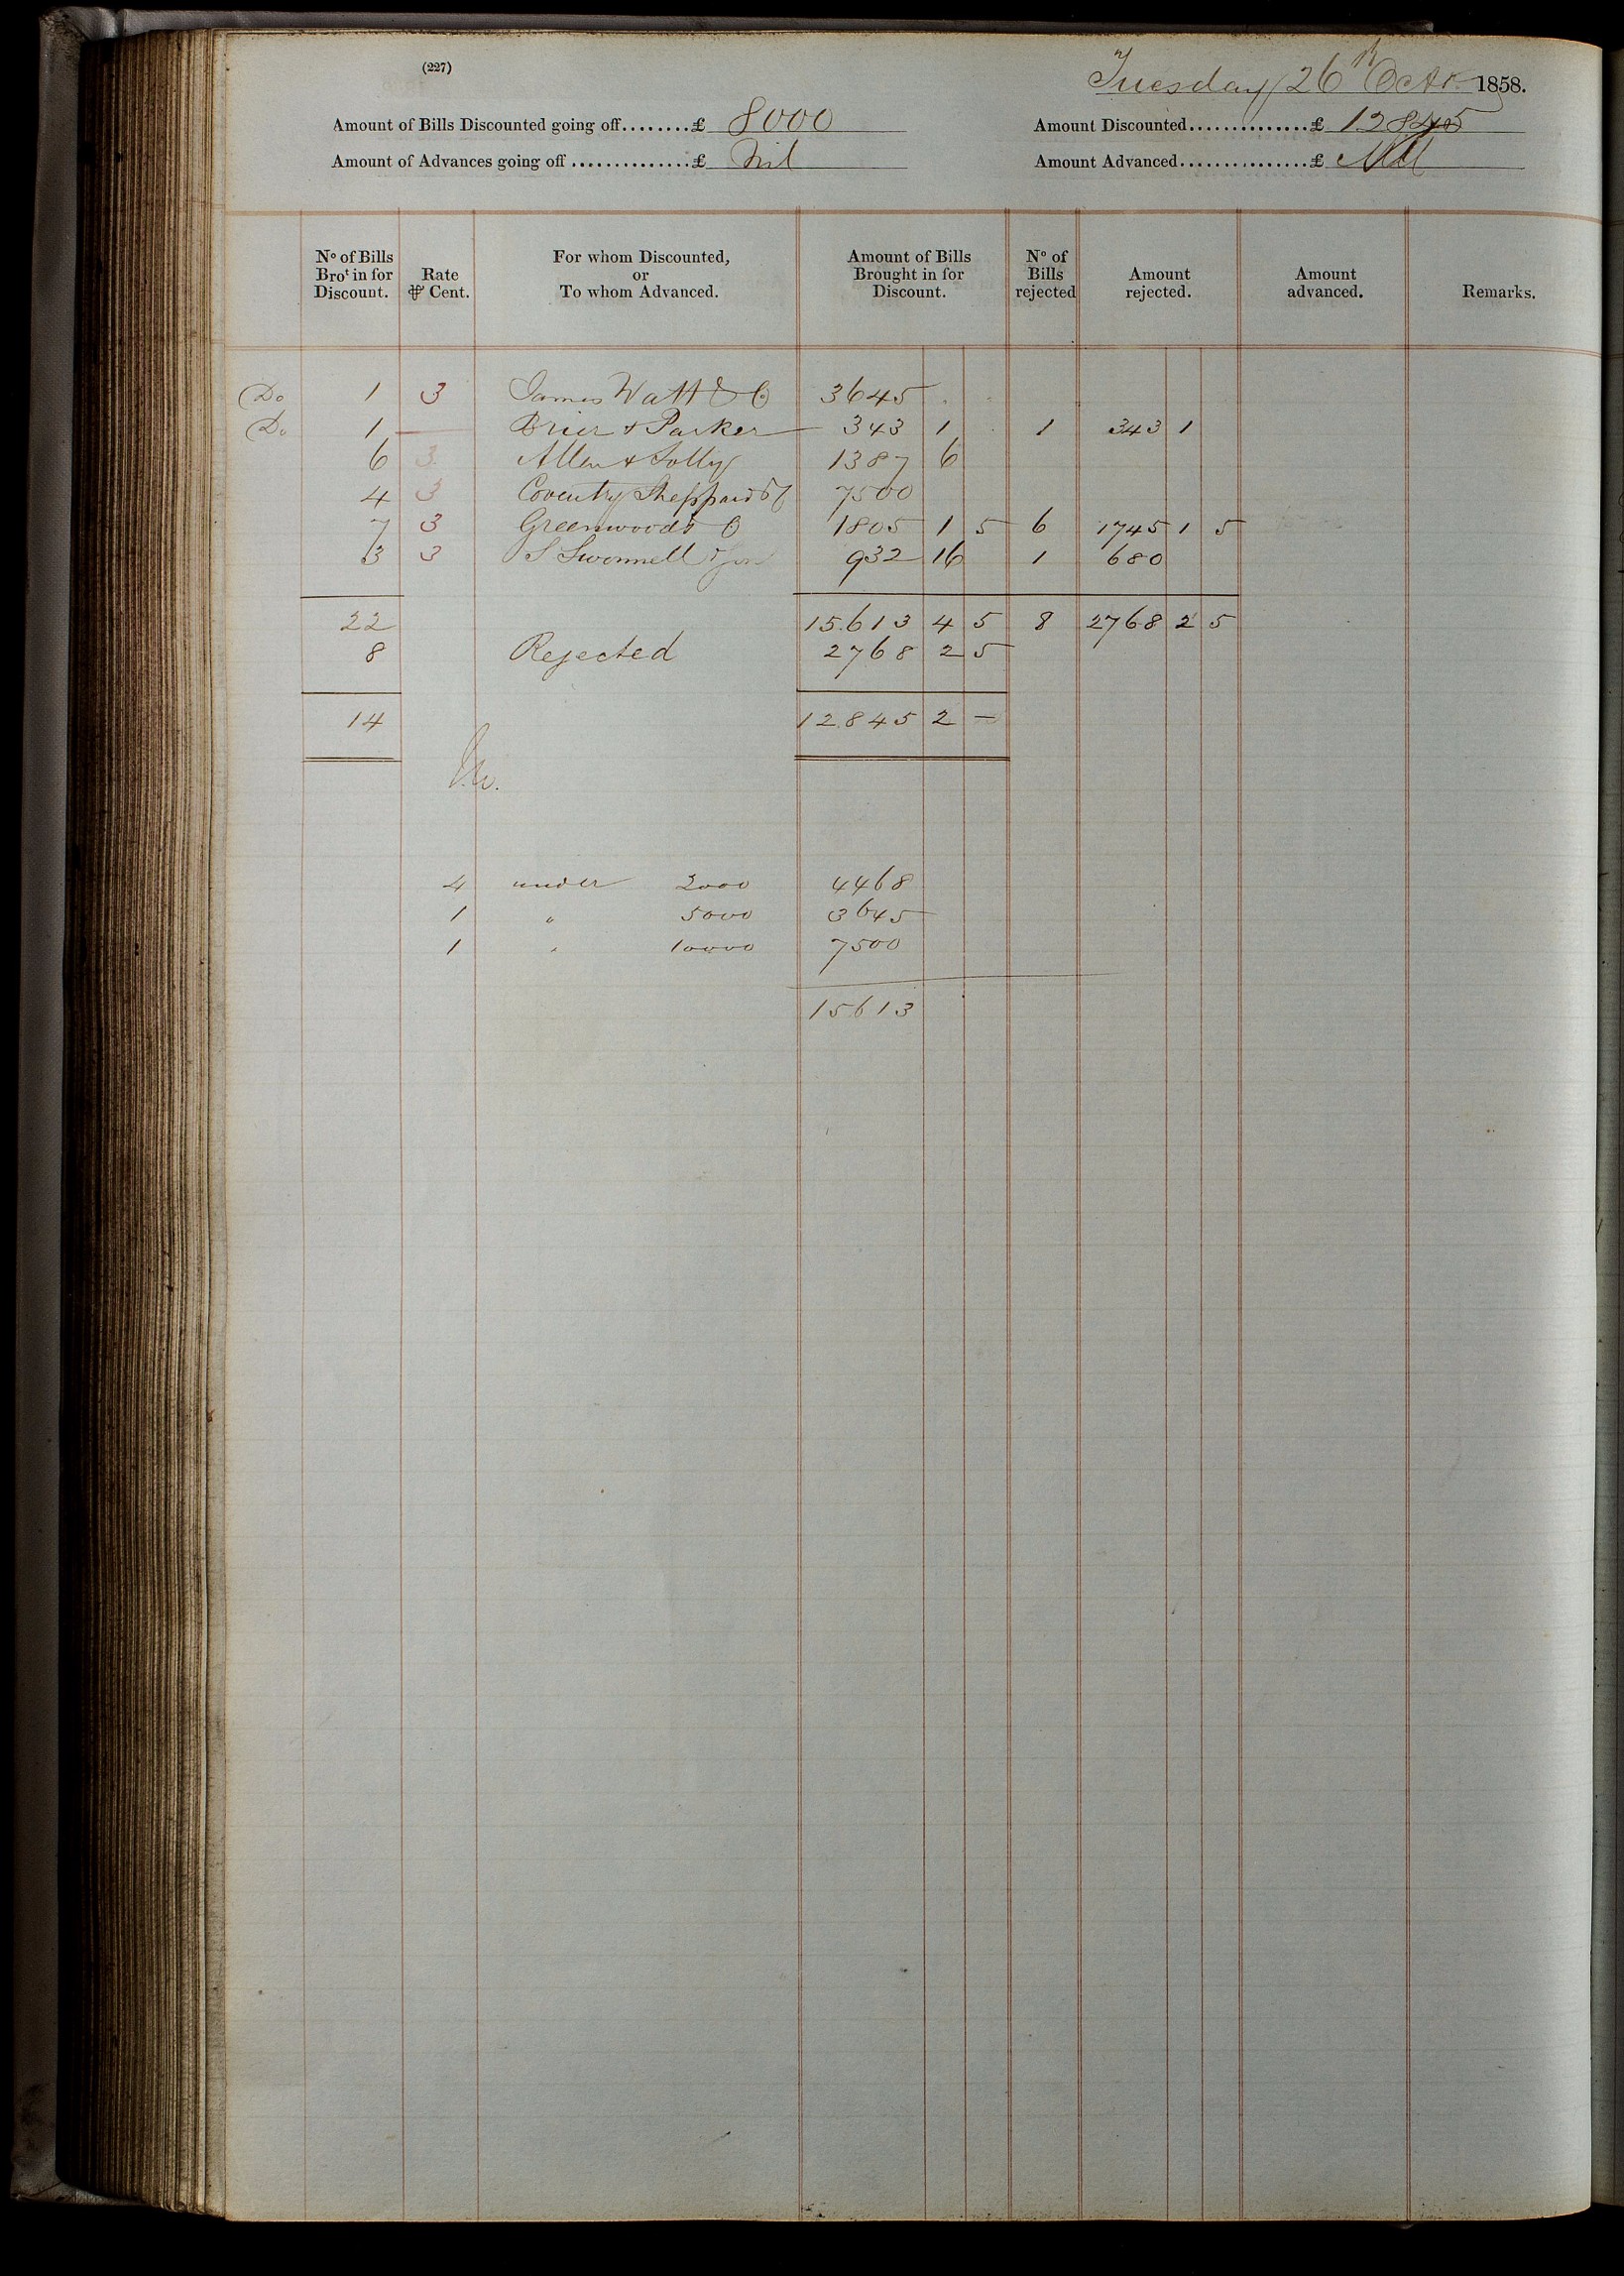 (227)
Tuesday 26th Octr. 1858.
Amount of Bills Discounted going off........£ 8000 Amount Discounted...............£ 12845
Amount of Advances going off ..............£ Nil Amount Advanced...............£ Nil
No of Bills Brot in for Discount. Rate ⅌ Cent. For whom Discounted, or To whom Advanced. Amount of Bills Brought in for Discount. No of Bills rejected Amount rejected. Amount advanced. Remarks.
Do 1 3 James Watt & Co 3645
Do 1 — Brier & Parker 343 1 1 343 1
6 3 Allen & Solly 1387 6
4 3 Coventry Sheppard & Co 7500
7 3 Greenwood & Co 1805 1 5 6 1745 1 5
3 3 S Swonnell & Son 932 16 1 680
22 15.613 4 5 8 2768 2 5
8 Rejected 2768 2 5
14 12.845 2 —
4 under 2000 4468
1 " 5000 3645
1 " 10000 7500
15613